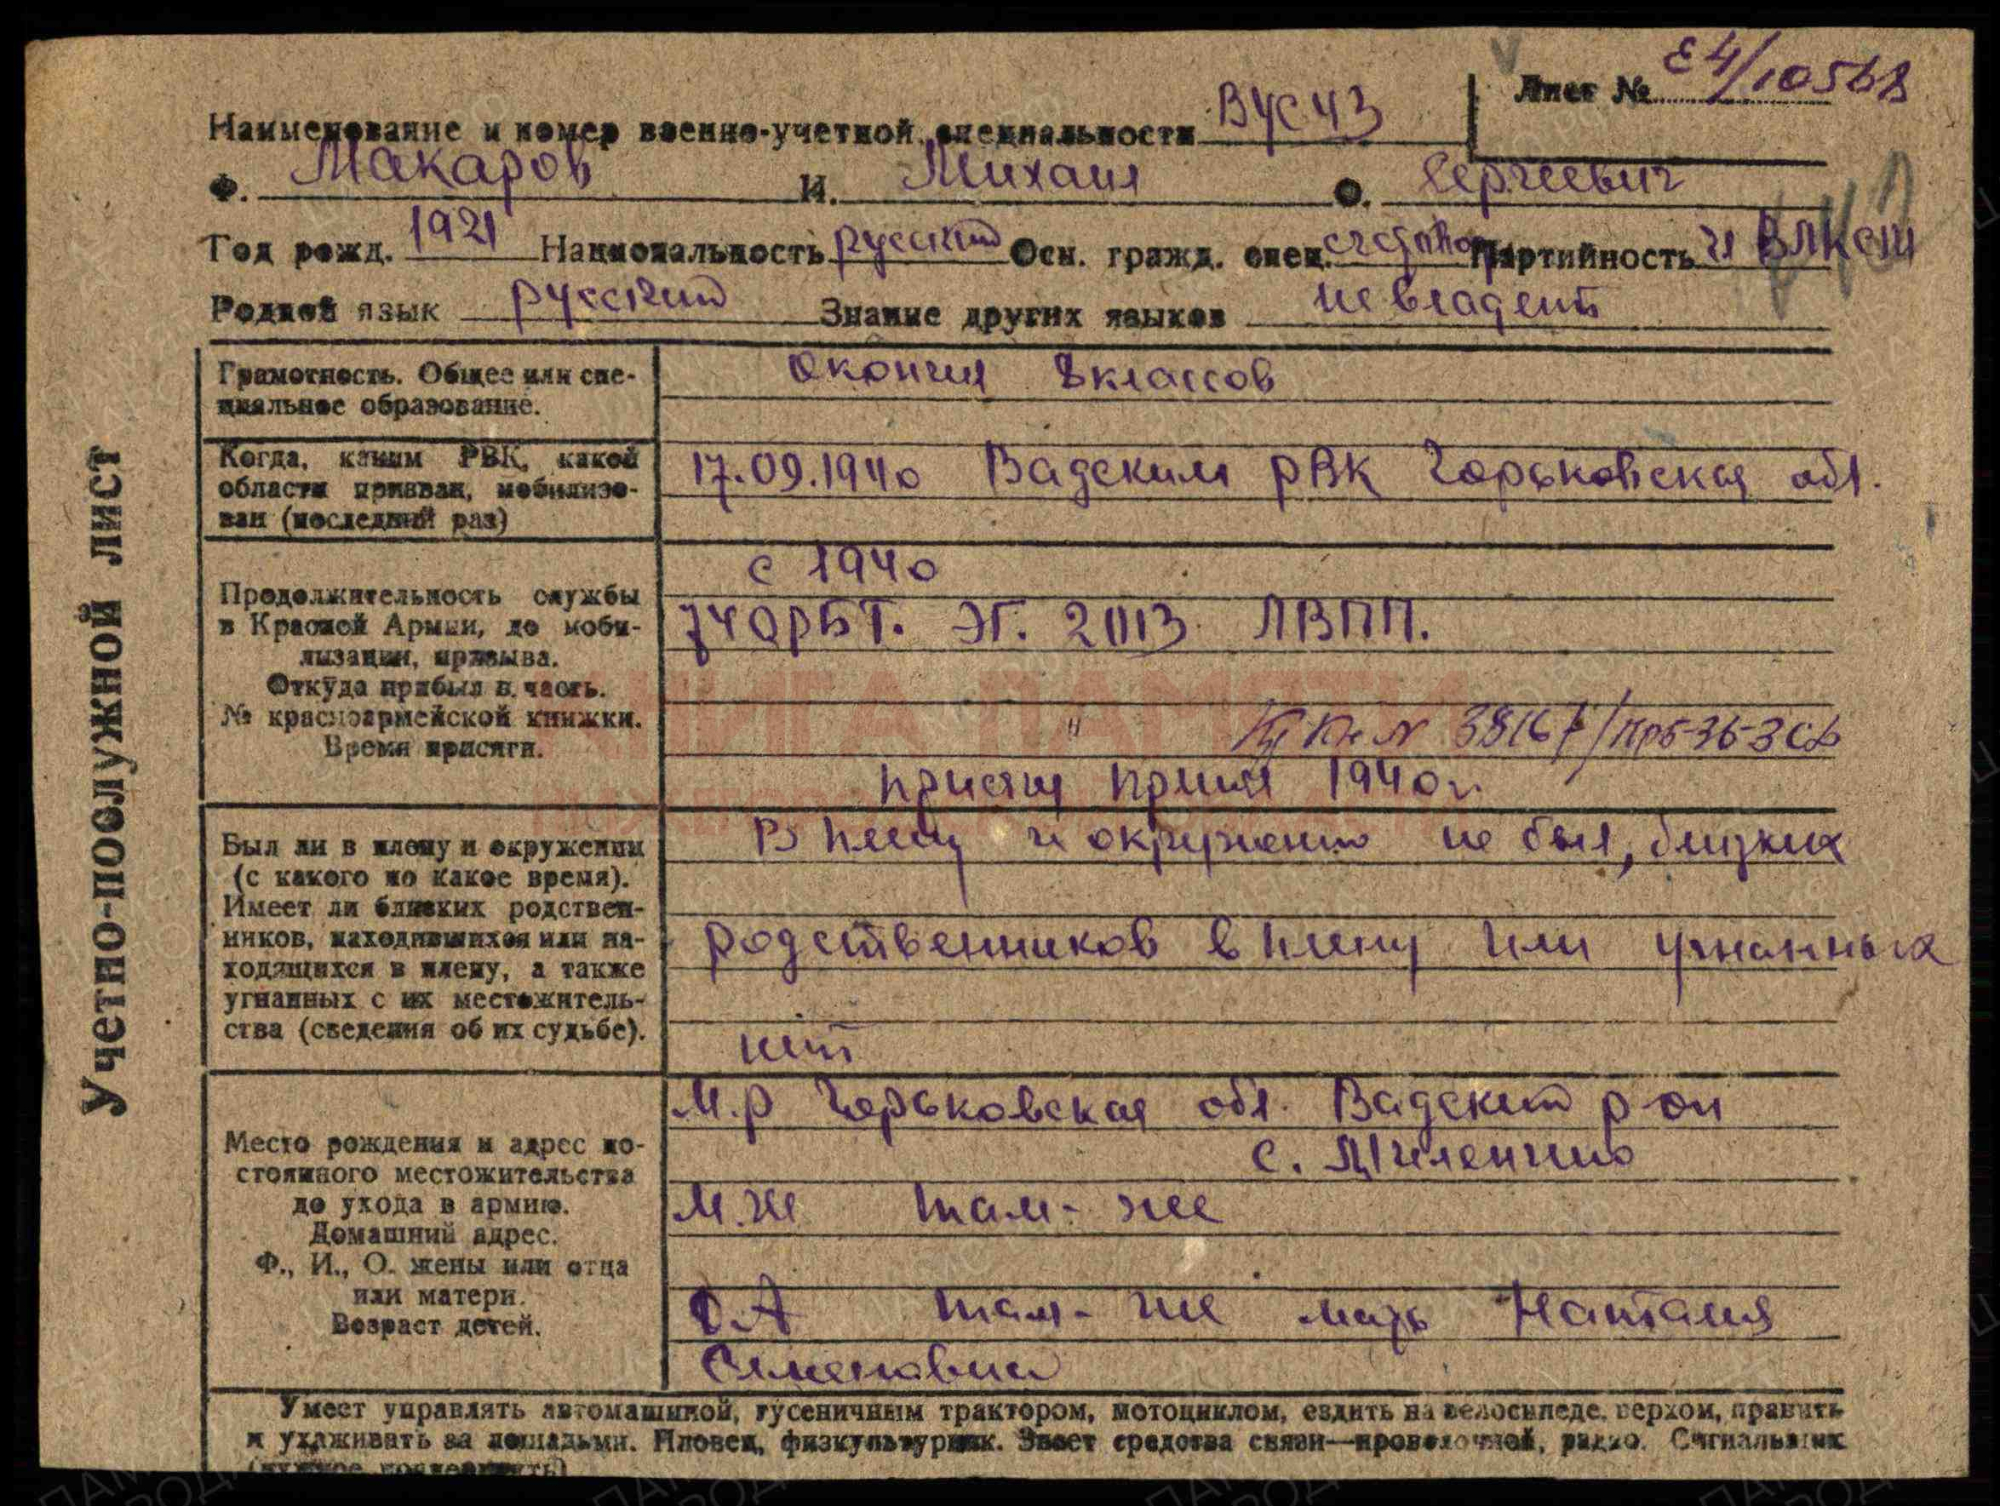 Учетно-послужной лист
Лист № Е4/10568
Наименование и номер военно-учетной специальности ВУС 43
Ф. Макаров И. Михаил О. Сергеевич
Год рожд. 1921 Национальность русский Осн. гражд. спец. Партийность чл ВЛКСМ
Родной язык русский Знание других языков не владеет
Грамотность. Общее или спе-
циальное образование.
Окончил 8 классов
Когда, каким РВК, какой
области призван, мобилизо-
ван (последний раз)
17.09.1940 Вадским РВК Горьковская обл.
Продолжительность службы
в Красной Армии, до моби-
лизации, призыва.
Откуда прибыл в часть.
№ красноармейской книжки.
Время присяги.
с 1940
74 ОРБТ. ЭГ. 2113 ЛВПП.
Кр Кн N
присягу принял 1940 г.
Был ли в плену и окружении
(с какого по какое время).
Имеет ли близких родствен-
ников, находившихся или на-
ходящихся в плену, а также
угнанных с их местожитель-
ства (сведения об их судьбе).
В плену и окружении не был, близких
родственников в плену или угнанных
нет
Место рождения и адрес по-
стоянного местожительства
до ухода в армию.
Домашний адрес.
Ф., И., О. жены или отца
или матери.
Возраст детей.
М.Р Горьковская обл. Вадский р-он
с.
М.Ж там-же
Д.А там-же мать Наталия
Семеновна
Умеет управлять автомашиной, гусеничным трактором, мотоциклом, ездить на велосипеде, верхом, править
и ухаживать за лошадьми. Пловец, физкультурник. Знает средства связи—проволочной, радио. Сигнальщик
(нужное подчеркнуть)
КНИГА ПАМЯТИ